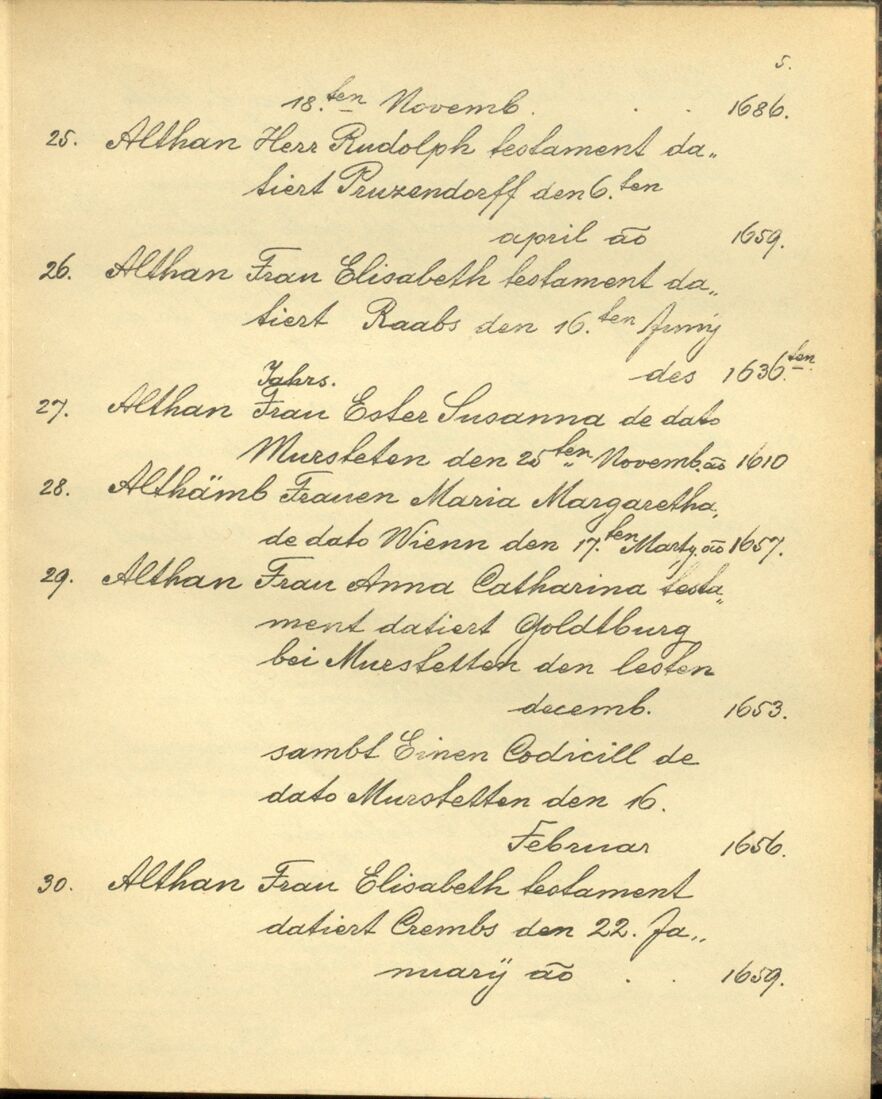 5.
18.ten Novemb. . . 1686.
25. Althan Herr Rudolph testament da„
tiert Pruzendorff den 6.ten
april ão 1659.
26. Althan Frau Elisabeth testament da„
tiert Raabs den 16.ten Junÿ
des 1636.ten
Jahrs.
27. Althan Frau Ester Susanna de dato
Mursteten den 25ten Novemb. ão 1610
28. Althämb Frauen Maria Margaretha,
de dato Wienn den 17.ten Marty. ão 1657.
29. Althan Frau Anna Catharina testa„
ment datiert Goldtburg
bei Murstetten den lesten
decemb. 1653.
sambt Einen Codicill de
dato Murstetten den 16.
Februar 1656.
30. Althan Frau Elisabeth testament
datiert Crembs den 22. Ja„
nuarÿ ão . . 1659.